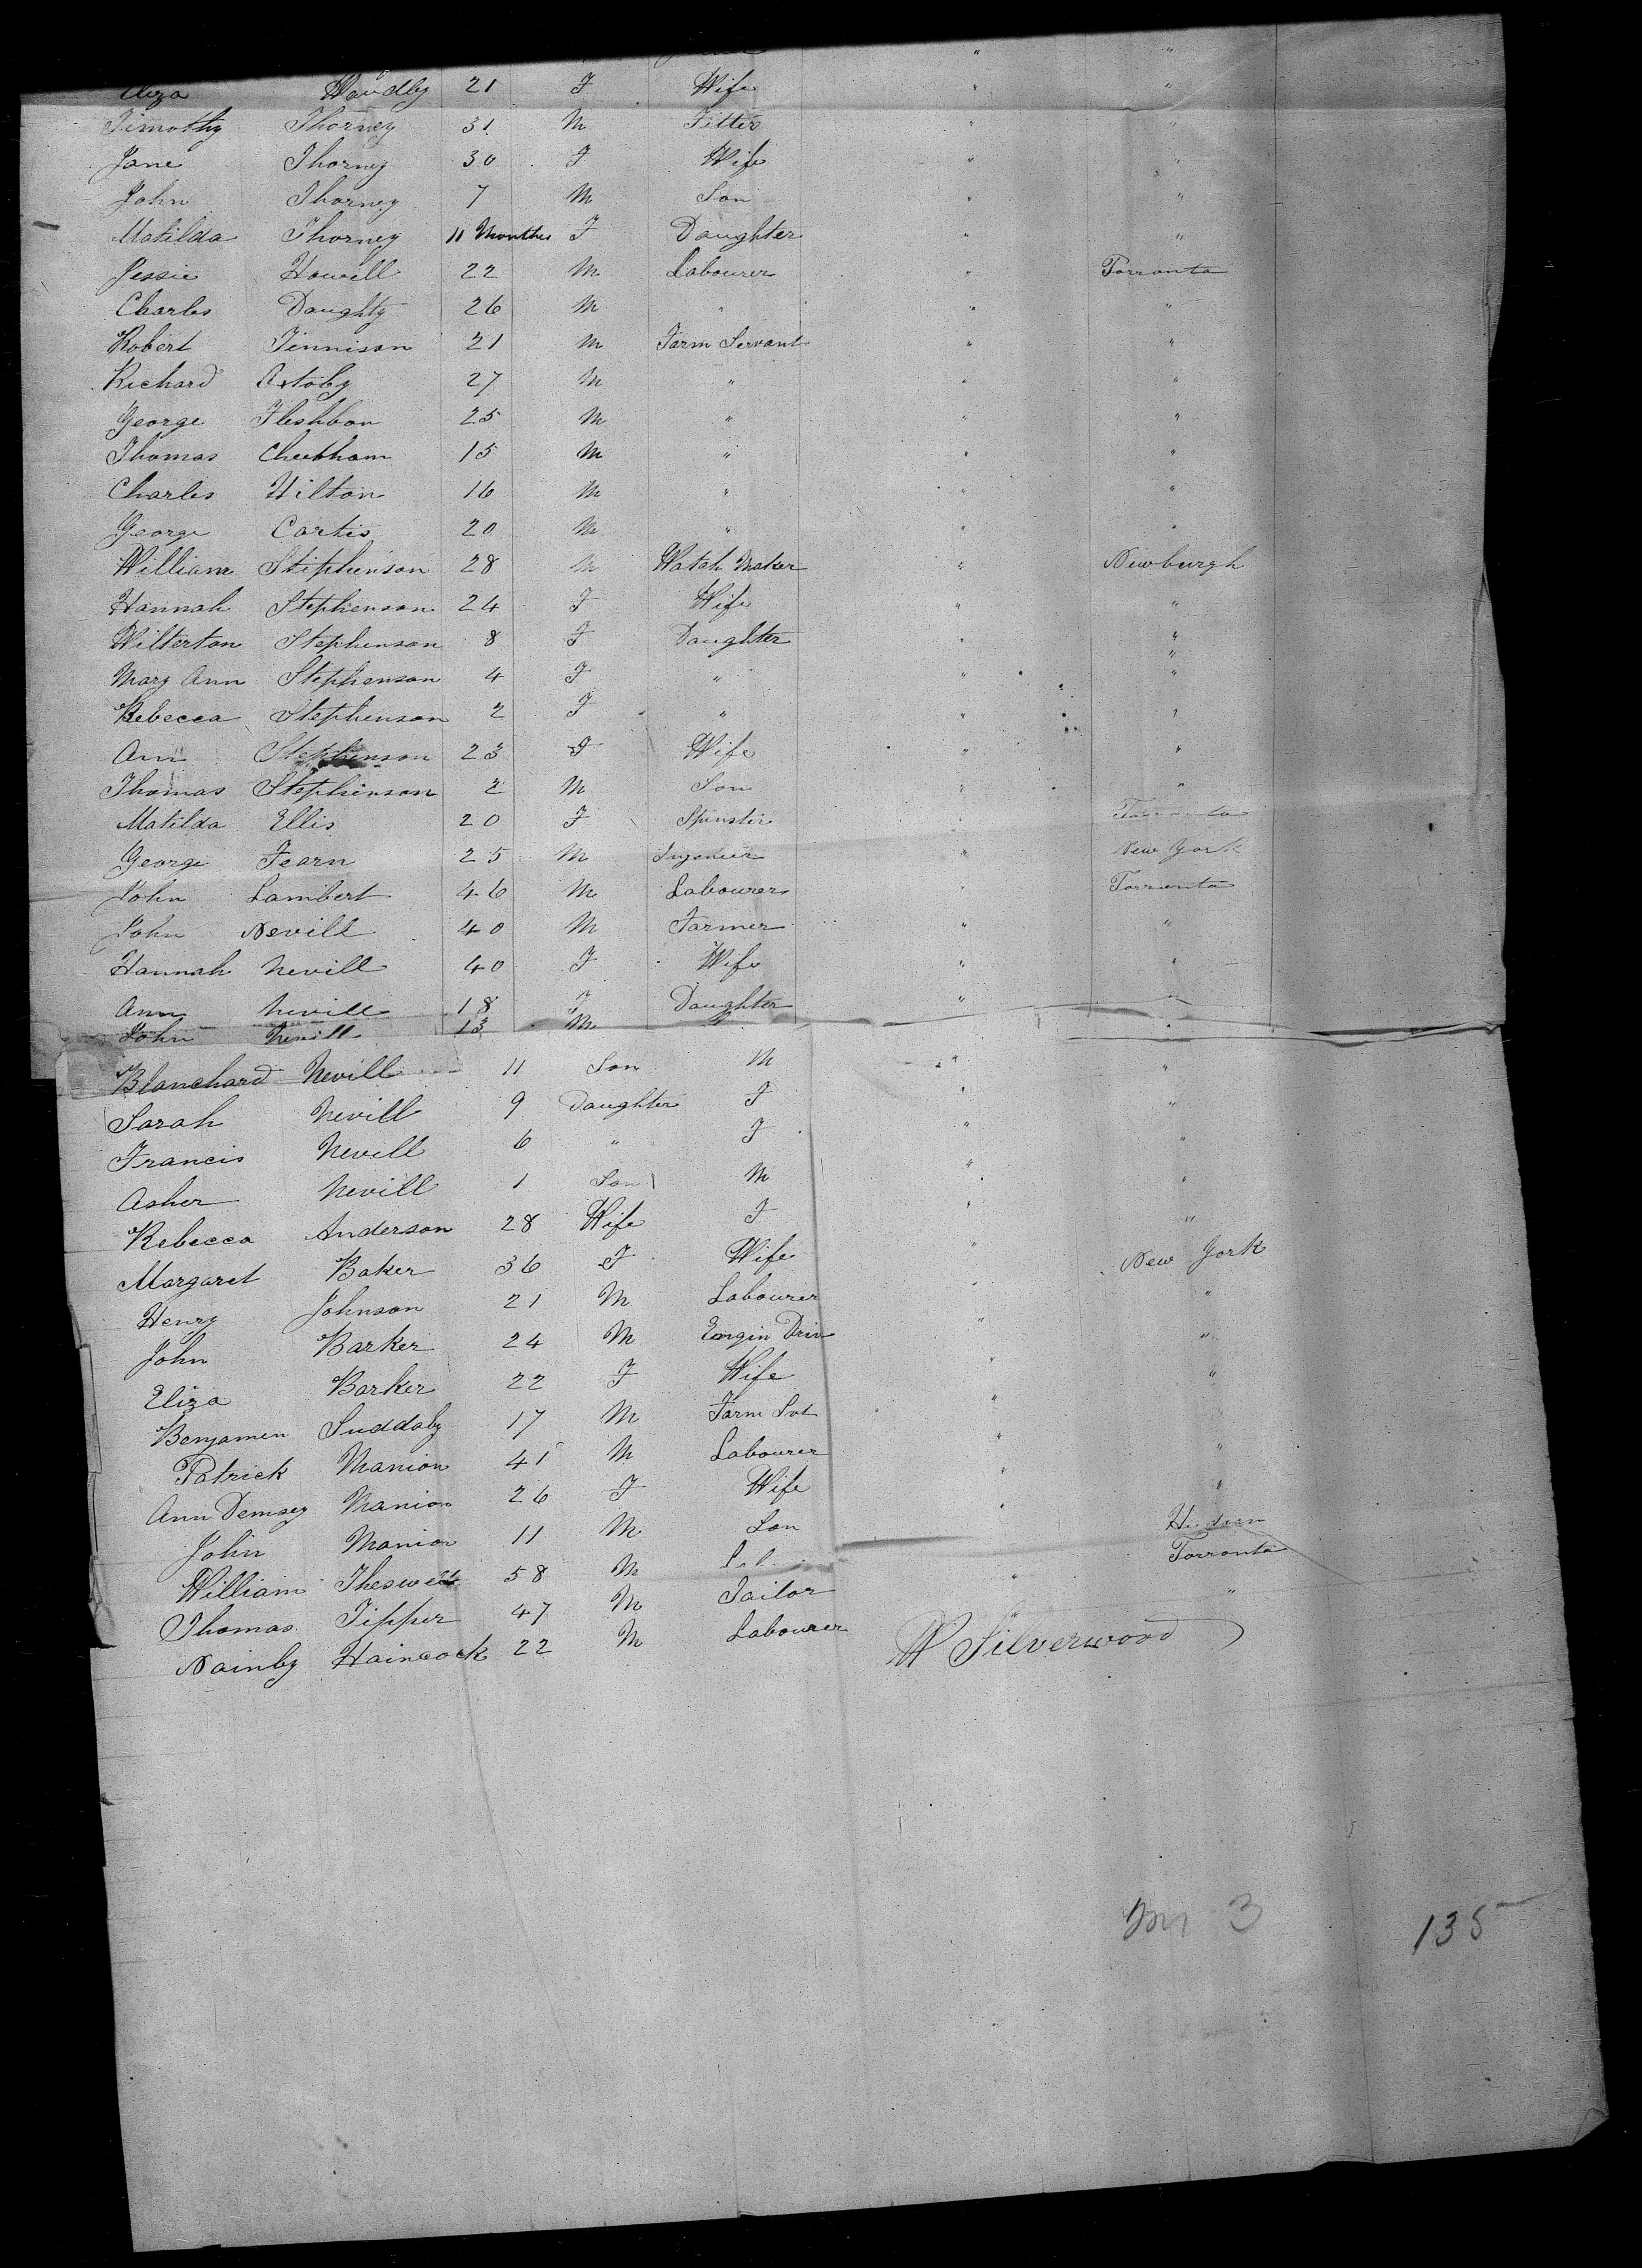 " "
Eliza Waudby 21 F Wife " "
Timothy Thorney 31 M Fitter " "
Jane Thorney 30 F Wife " "
John Thorney 7 M Son " "
Matilda Thorney 11 Months F Daughter " "
Jessie Howell 22 M Labourer " Torronto
Charles Daughty 26 M " " "
Robert Tennison 21 M Farm Servant " "
Richard Oxtoby 27 M " " "
George Fleshbon 25 M " " "
Thomas Cheetham 15 M " " "
Charles Hilton 16 M " " "
George Cartis 20 M " " "
William Stephenson 28 M Watch Maker " Newburgh
Hannah Stephenson 24 F Wife " "
Wilterton Stephenson 8 F Daughter " "
Mary Ann Stephenson 4 F " " "
Rebecca Stephenson 2 F " " "
Ann Stephenson 23 F Wife " "
Thomas Stephenson 2 M Son " "
Matilda Ellis 20 F Spinster " Torronto
George Fearn 25 M Ingeneer " New York
John Lambert 46 M Labourer " Torronto
John Nevill 40 M Farmer " "
Hannah Nevill 40 F Wife " "
Ann Nevill 18 F Daughter " "
John Nevill 13 M "
Blanchard Nevill 11 Son M " "
Sarah Nevill 9 Daughter F " "
Francis Nevill 6 " F " "
Asher Nevill 1 Son M " "
Rebecca Anderson 28 Wife F " "
Margaret Baker 36 F Wife " New York
Henry Johnson 21 M Labourer " "
John Barker 24 M Engin Driv " "
Eliza Barker 22 F Wife " "
Benjamen Suddaby 17 M Farm Svt "
Patrick Manion 41 M Labourer " "
Ann Demsey Manion 26 F Wife " "
John Manion 11 M Son "
William 58 M Torronto
Thomas Tipper 47 M Tailor " "
Nainby Haincock 22 M Labourer "
W Silverwood
3
135